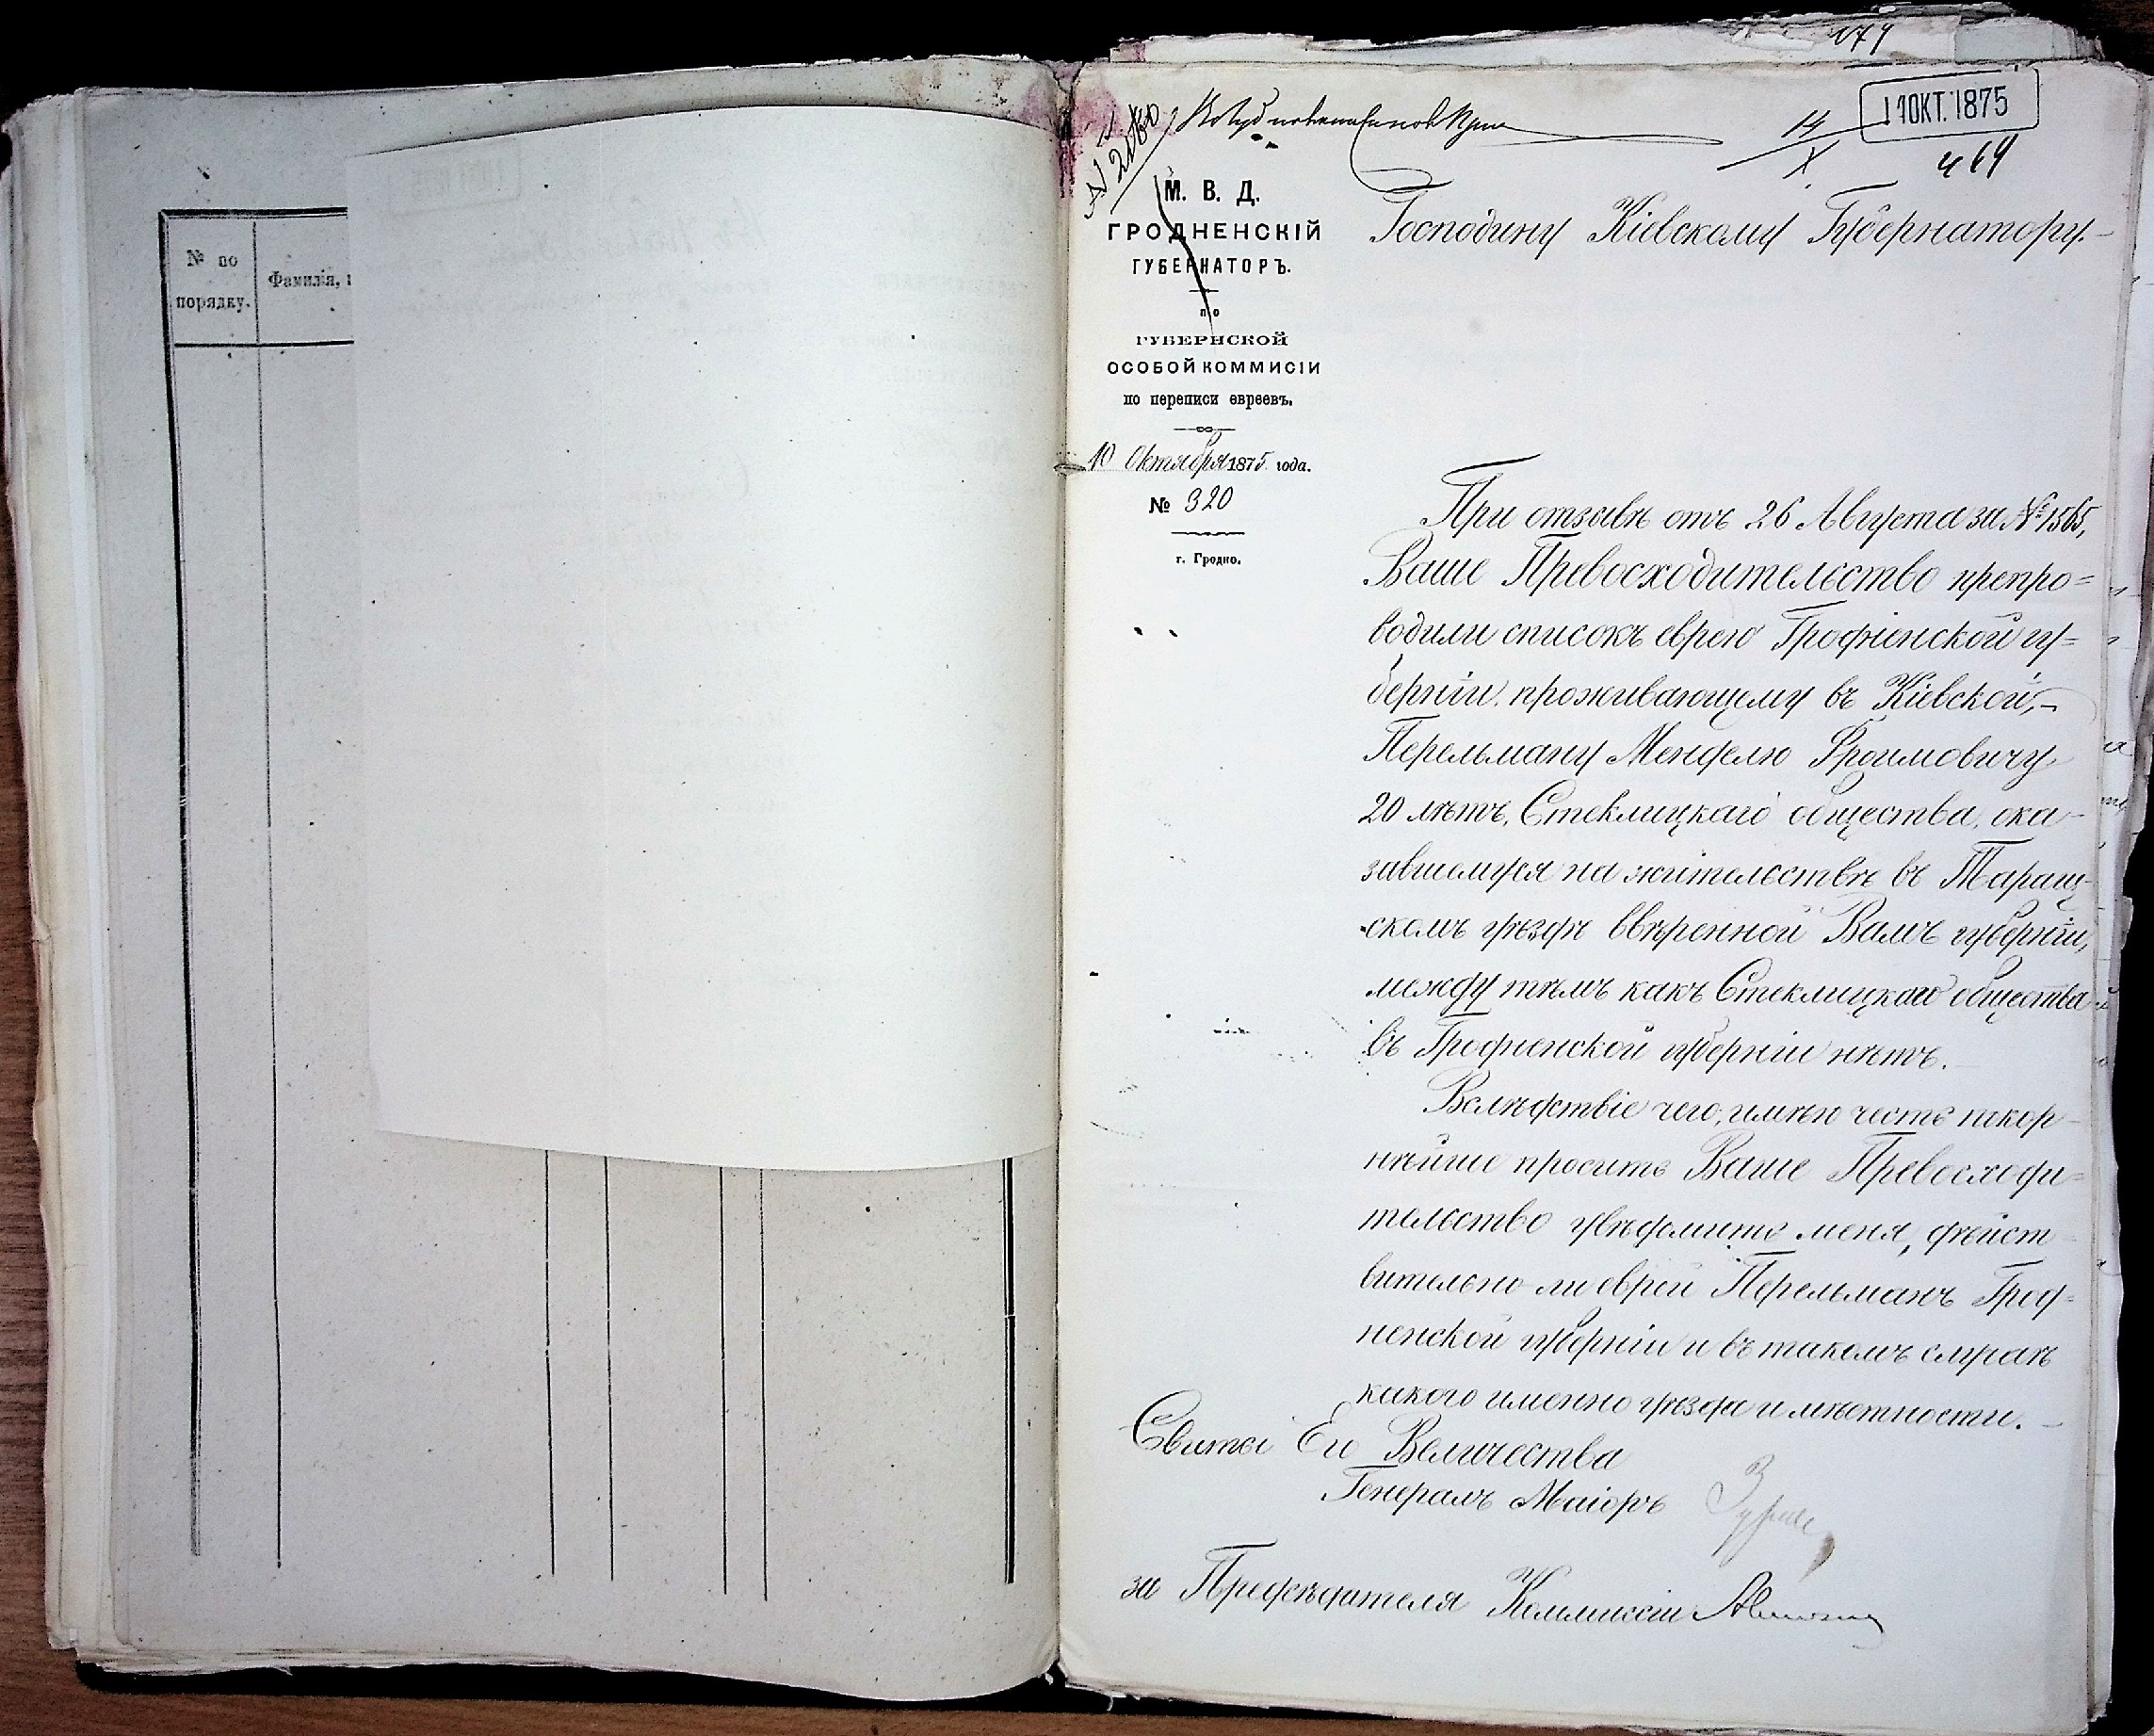 № по
порядку.
Фамилія,
179
11 ОКТ. 1875
14/X
464
М. В. Д.
ГРОДНЕНСКІЙ
ГУБЕРНАТОРЪ.
по
ГУБЕРНСКОЙ
ОСОБОЙ КОММИСІИ
по переписи евреевъ.
10 Октября 1875 года.
№ 320
г. Гродно.
Господину Кіевскому Губернатору.
При отзывѣ отъ 26 Августа за № 1565,
Ваше Превосходительство препро=
водили списокъ еврею Гродненской гу=
берніи, проживающему въ Кіевской,
Перельману Менделю Фроимовичу
20 лѣтъ, Стеклицкаго общества, ока-
завшемуся на жительствѣ въ Таращ-
скомъ уѣздѣ ввѣренной Вамъ губерніи,
между тѣмъ какъ Стеклицкаго общества
въ Гродненской губерніи нѣтъ.
Вслѣдствіе чего, имѣю честь покор-
нѣйше просить Ваше Превосходи=
тельство увѣдомить меня, дѣйст-
вительно ли еврей Перельманъ Грод=
ненской губерніи и въ такомъ случаѣ
какого именно уѣзда и мѣстности.
Свиты Его Величества
Генералъ Маіоръ
за Предсѣдателя Коммиссіи